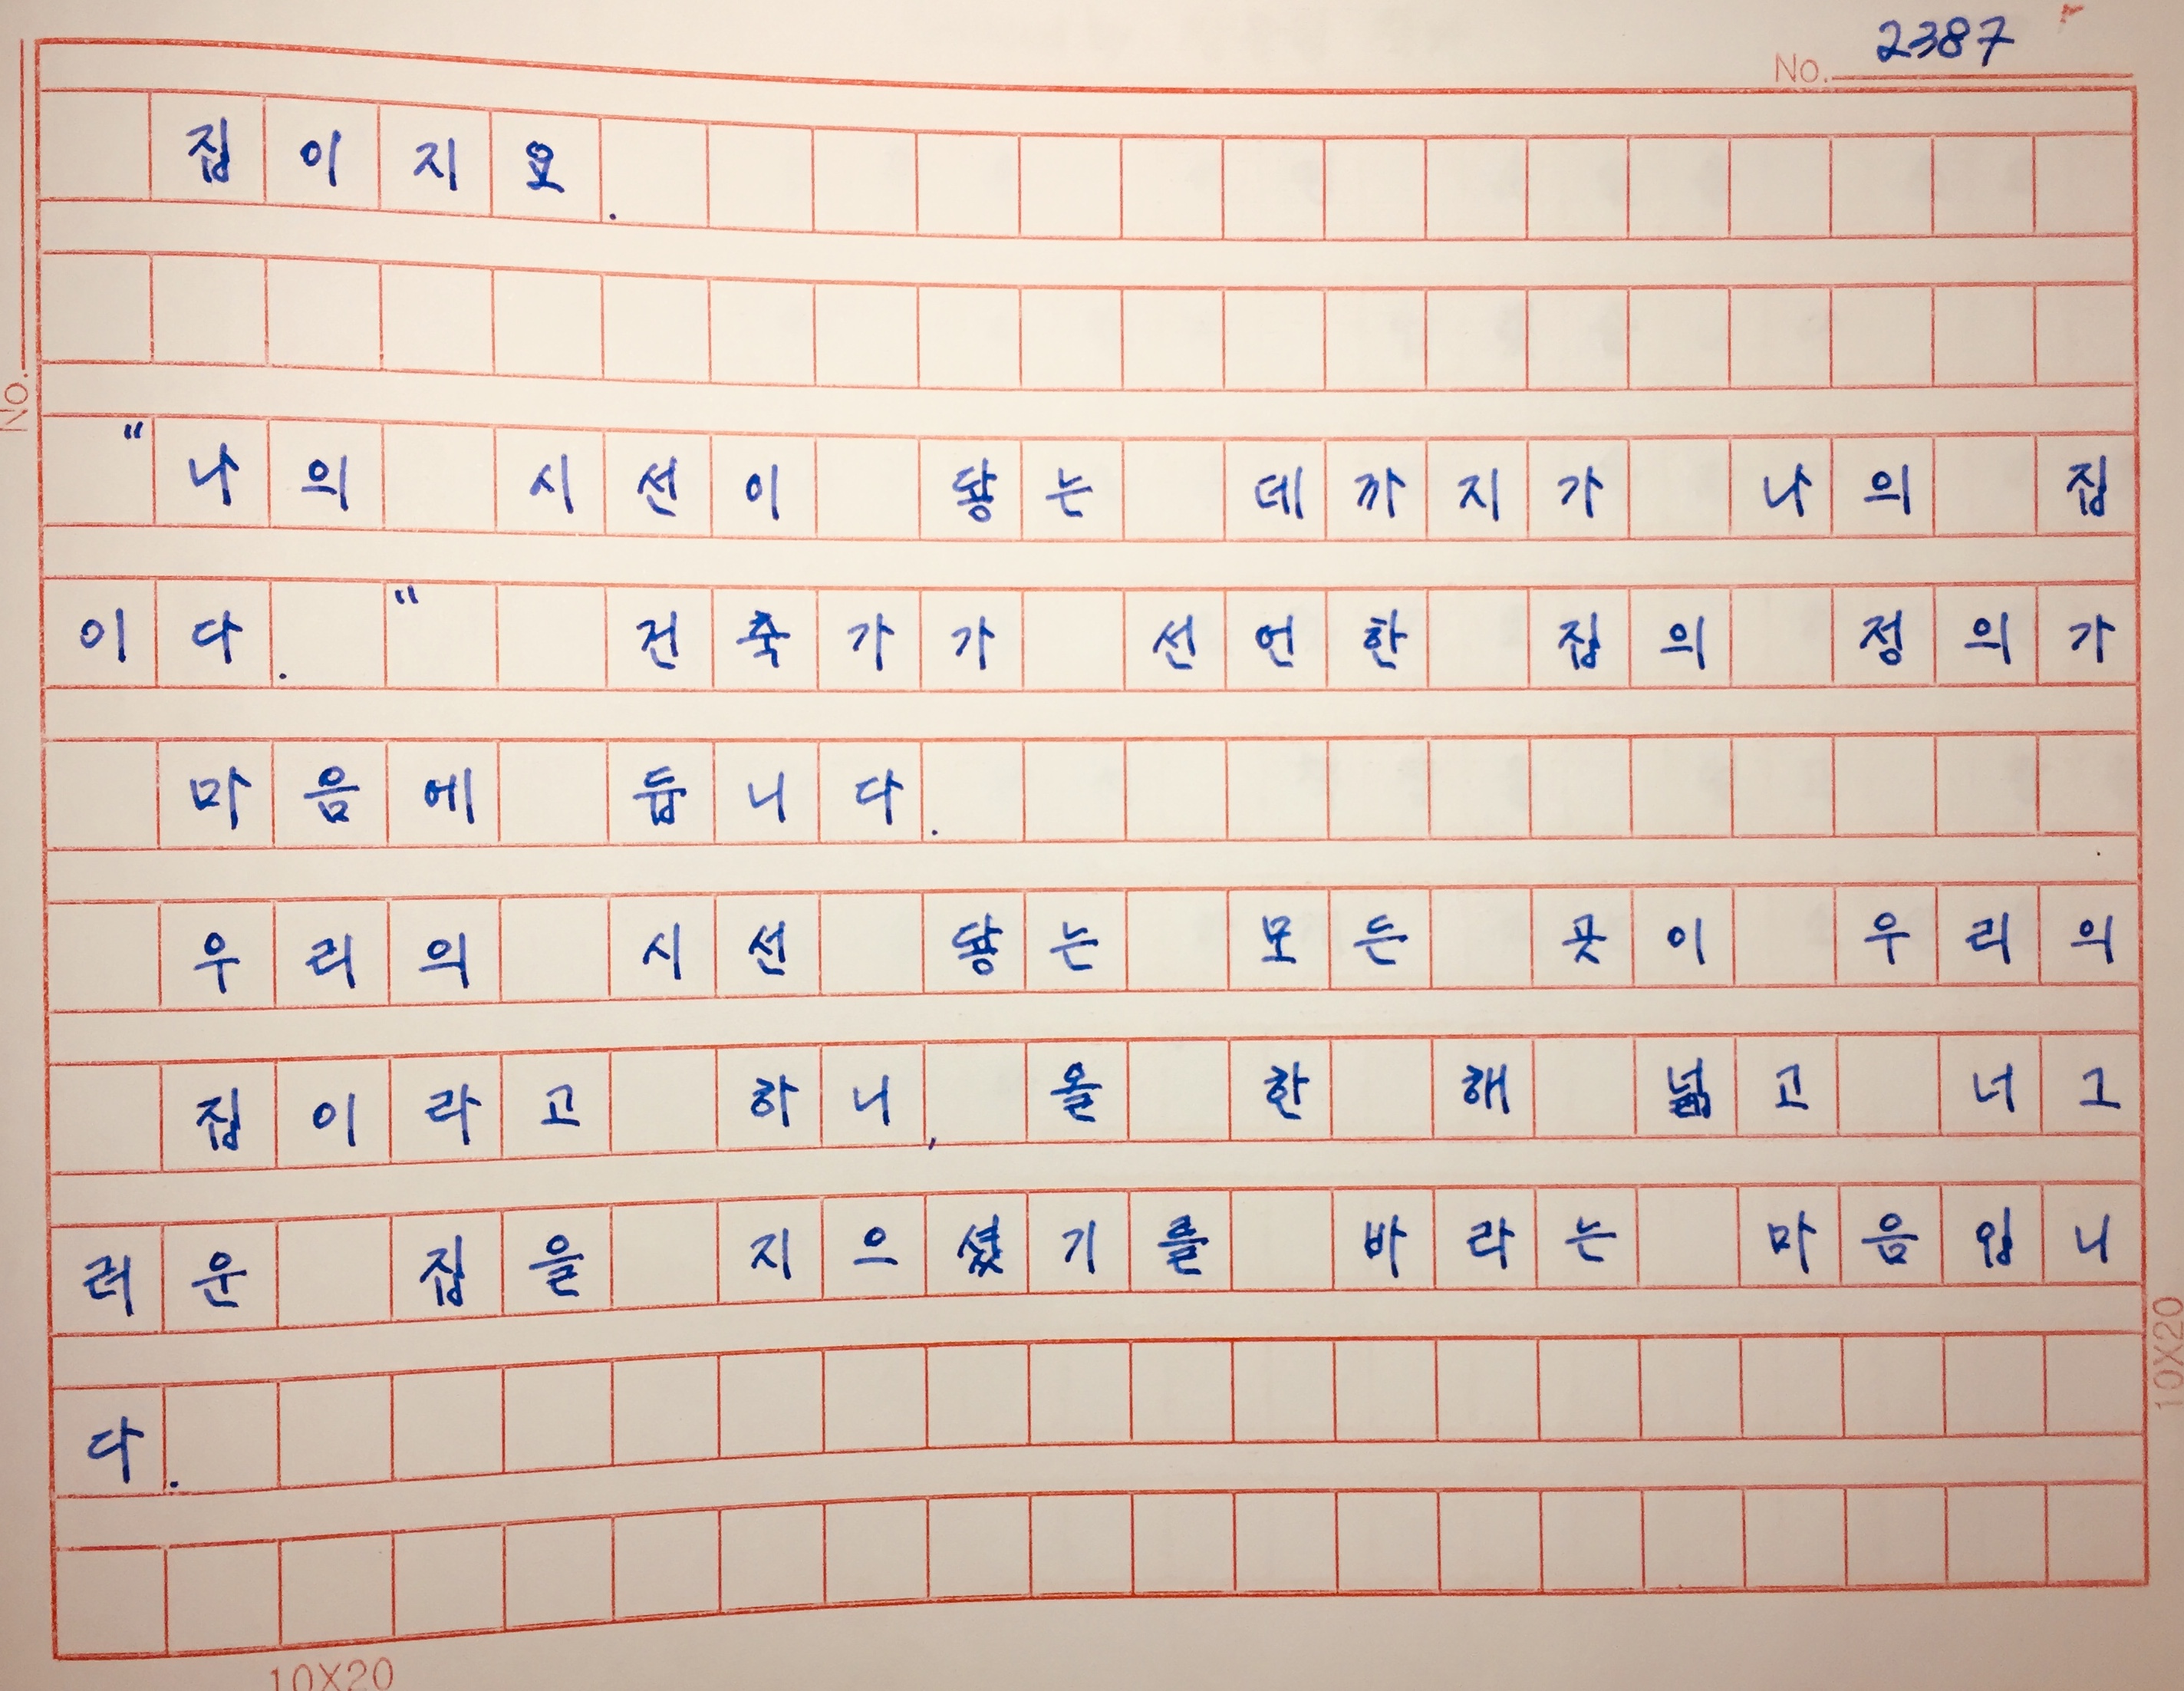 No. 2387
집이지요.
“나의 시선이 닿는 데까지가 나의 집
이다.“ 건축가가 선언한 집의 정의가
마음에 듭니다.
우리의 시선 닿는 모든 곳이 우리의
집이라고 하니, 올 한 해 넓고 너그
러운 집을 지으셨기를 바라는 마음입니
다.
No.
10X20
10X20